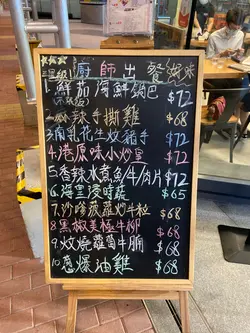 廚師出餐
1.鮮茄海鮮鍋巴 $72
2.麻辣手撕雞 $68
3.南乳花生炆豬手 $72
4.港原味小炒皇 $72
5.香辣水煮魚/牛/肉片 $72
6.海皇浸時蔬 $65
7.沙嗲菠蘿炒牛柳 $68
8.黑椒美極牛柳 $68
9.炆燒蘿蔔牛腩 $68
10.蔥爆油雞 $68